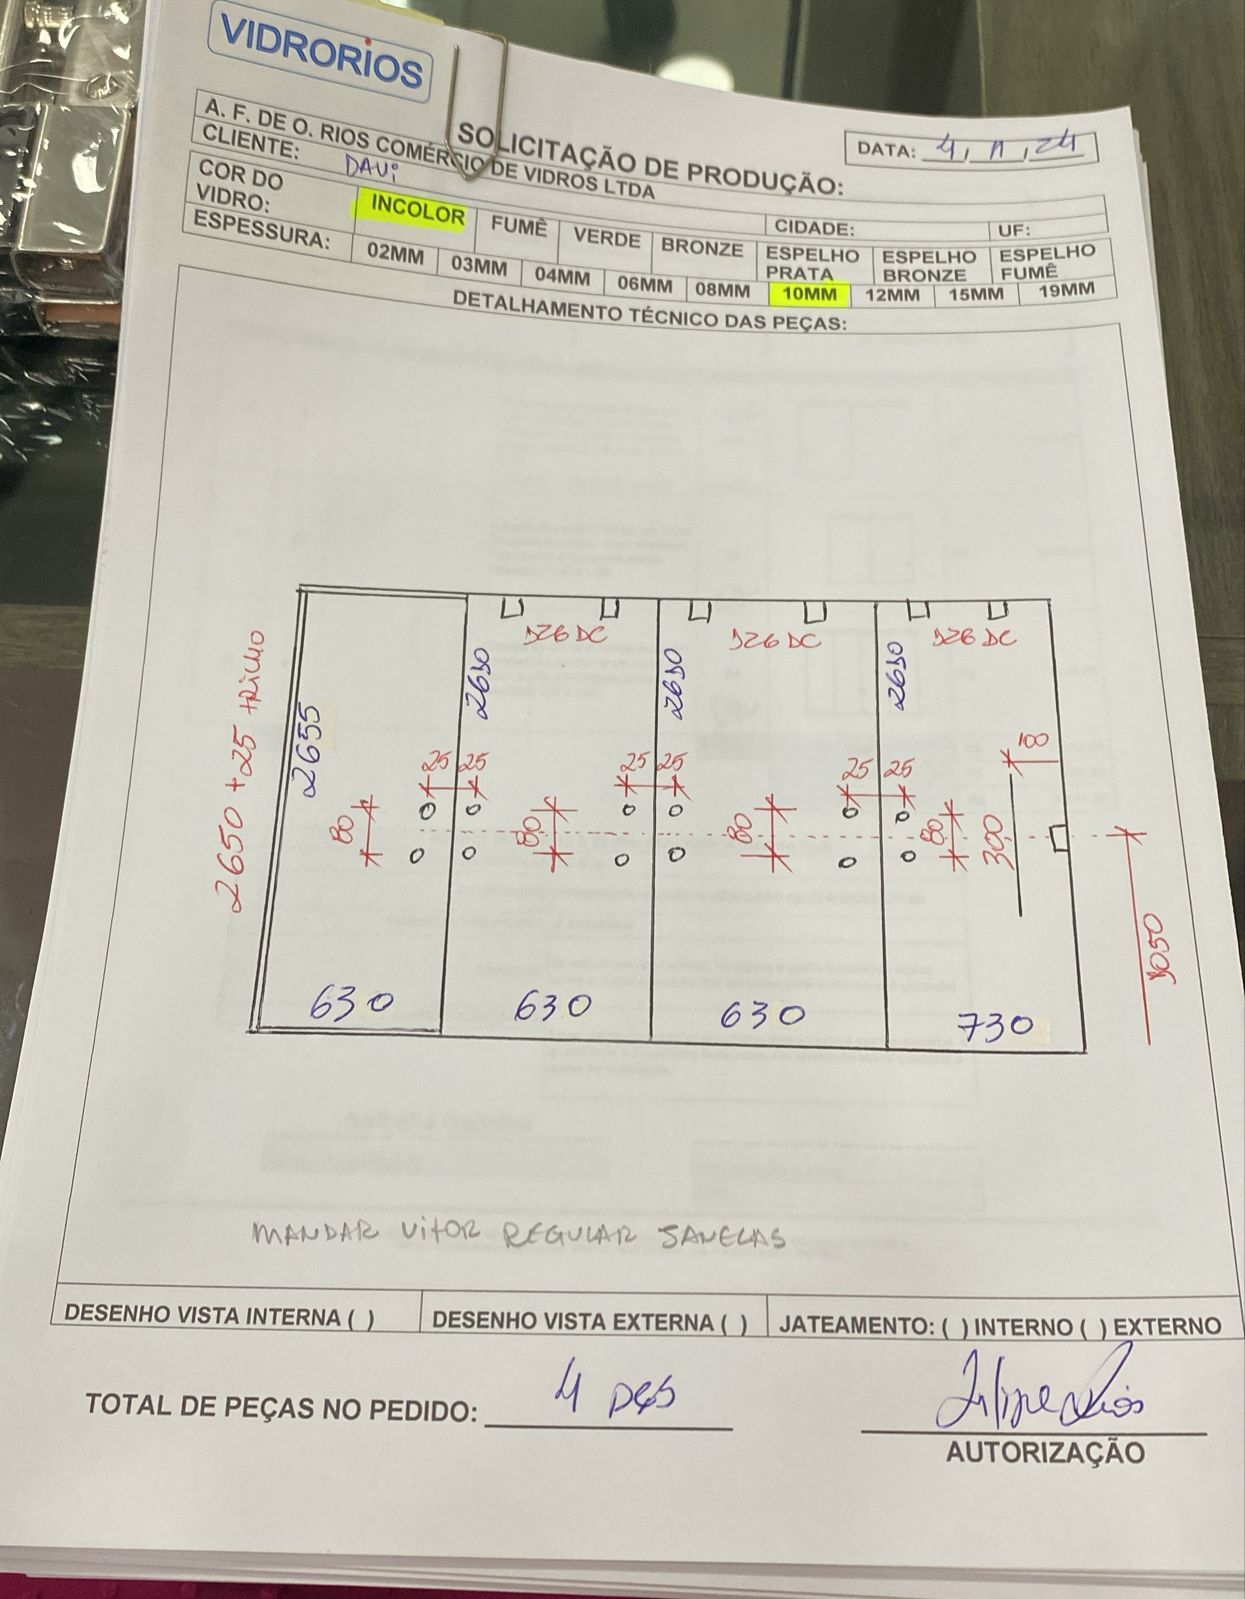 VIDRORIOS
SOLICITAÇÃO DE PRODUÇÃO:
DATA: 4, 11, 24
A. F. DE O. RIOS COMÉRCIO DE VIDROS LTDA
CLIENTE: DAVI
CIDADE: UF:
COR DO VIDRO: INCOLOR FUMÊ VERDE BRONZE ESPELHO PRATA ESPELHO BRONZE ESPELHO FUMÊ
ESPESSURA: 02MM 03MM 04MM 06MM 08MM 10MM 12MM 15MM 19MM
DETALHAMENTO TÉCNICO DAS PEÇAS:
1326 DC 1326 DC 1326 DC
2650 + 25 TRILHO
2655
2630 2630 2630
25 25 25 25 25 25
100
80 80 80 80
300
1050
630 630 630 730
MANDAR VITOR REGULAR JANELAS
DESENHO VISTA INTERNA ( ) DESENHO VISTA EXTERNA ( ) JATEAMENTO: ( ) INTERNO ( ) EXTERNO
TOTAL DE PEÇAS NO PEDIDO: 4 PÇS
Filipe Rios
AUTORIZAÇÃO